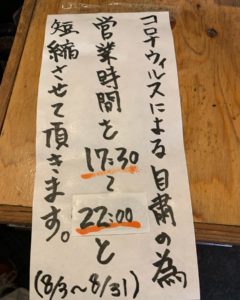 コロナウィルスによる自粛の為
営業時間を17:30~22:00と
短縮させて頂きます。
(8/3~8/31)